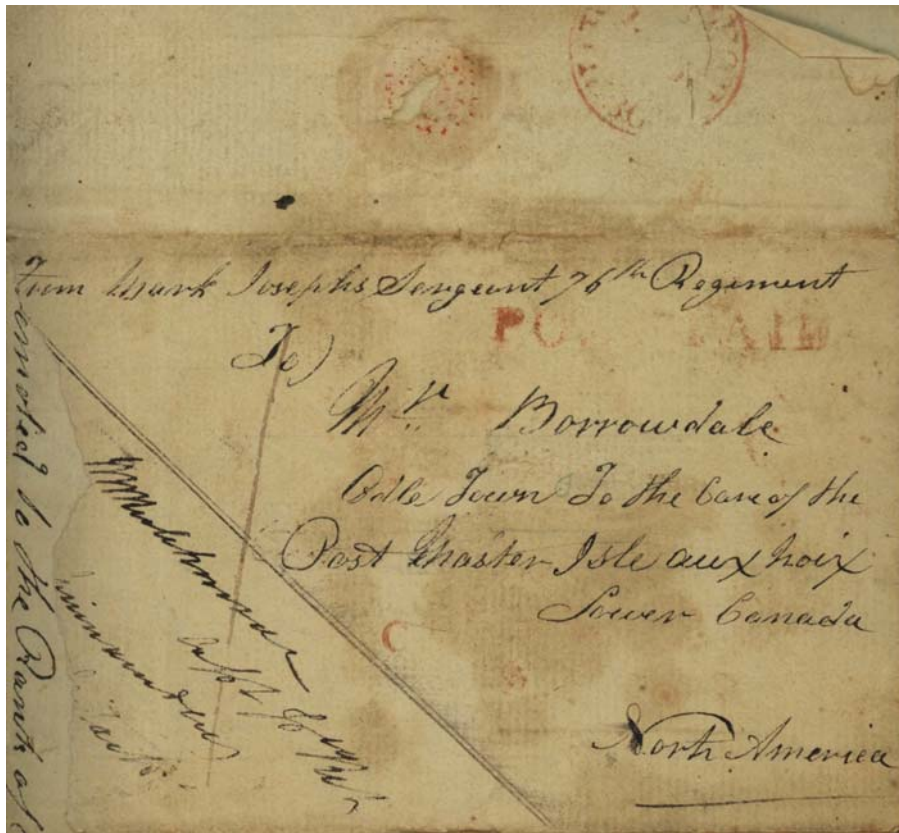 From Mark Josephs Sergeant 76th Regiment
PO AID
To)
Mr Borrowdale
Odle Town To the Care of the
Post Master Isle aux Noix
Lower Canada
North America
to the Rank of
Capt 76 Regt